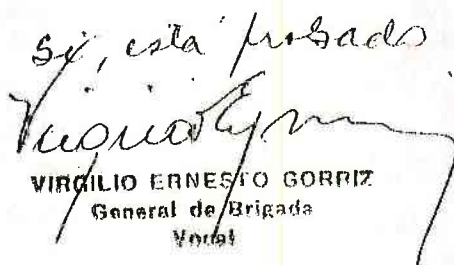 Sí, está probado
VIRGILIO ERNESTO GORRIZ
General de Brigada
Vocal